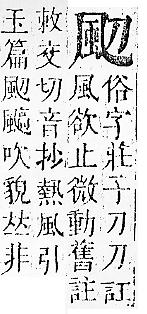 俗字莊子刀刀訌
風欲止微動舊註
敕交切音抄熱風引
玉篇吹貌𠀤非